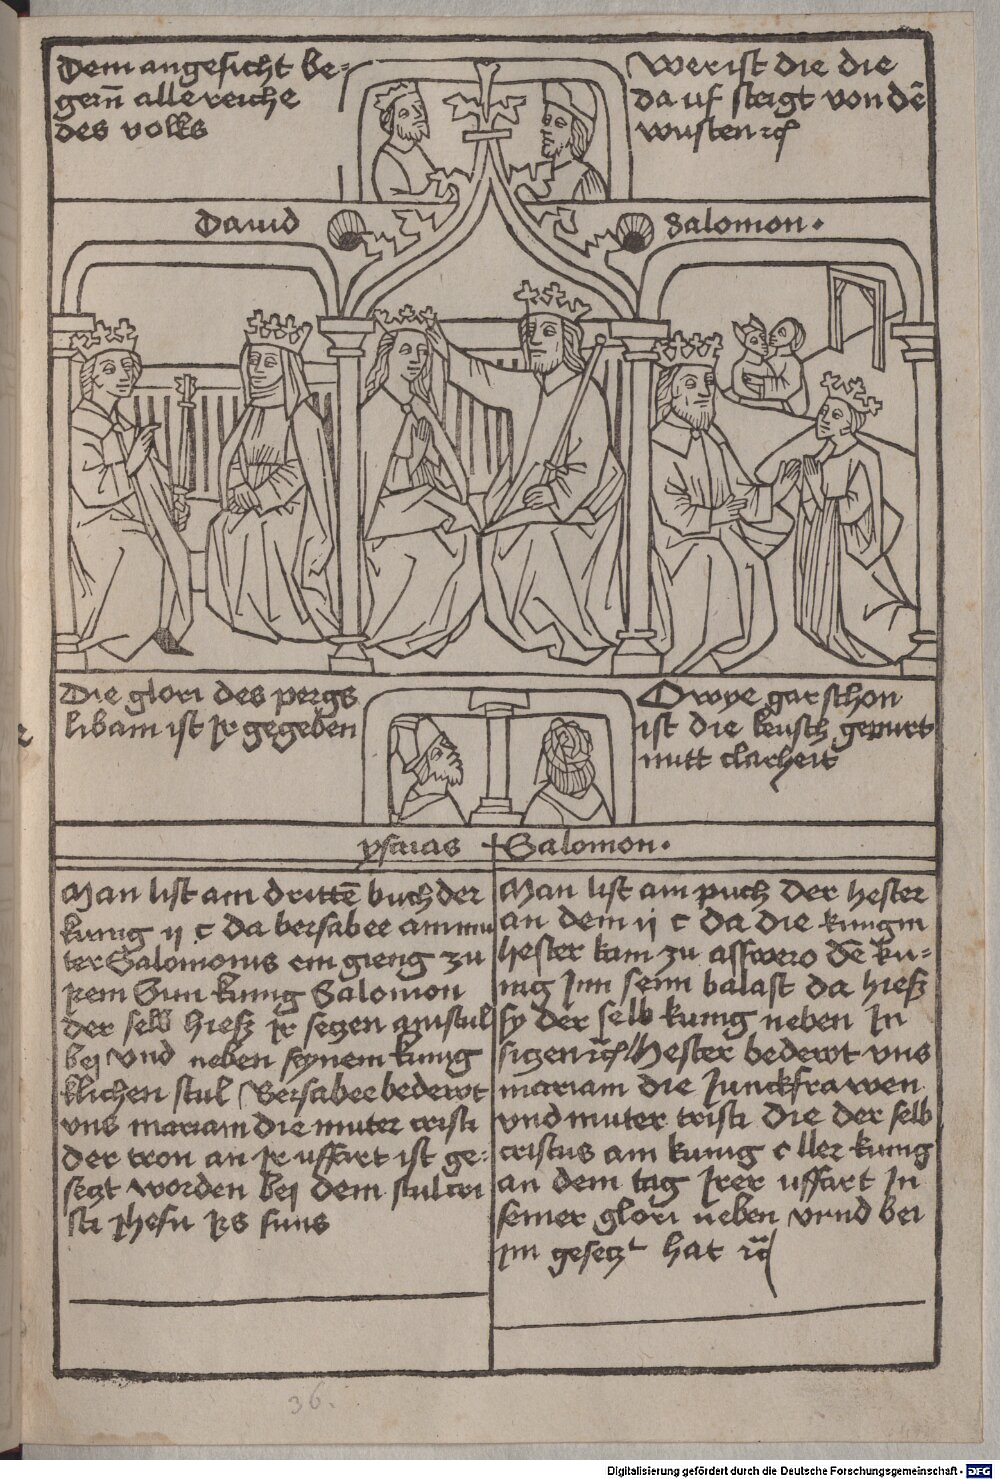 Dem angesicht be-
gern̄ alle reiche
des volks
Wer ist die die
da uf steigt von dē
wusten ꝛc
Dauid
Salomon.
Die glori des pergs
libani ist Jr gegeben
O wye gar schon
ist die keusch gepurt
mitt clarheit
ysaias
Salomon.
Man list am drittē buch der
kunig ij c da bersabee ain mu
ter Salomonis ein gieng zu
irem Sun kunig Salomon
der selb hiesz ir seczen ain stul
bej vnd neben seynem kunig
klichen stul Bersabee bedewt
vns mariam die muter cristi
der tron an ir uffart ist ge-
seczt worden bej dem stul cri
sti jhesu irs suns
Man list am puch der hester
an dem ij c da die kungin
hester kam zu asswero dē ku-
nig Jnn senn balast da hiesz
sy der selb kunig neben Jn
siczen ꝛc Hester bedewt vns
mariam die Junckfrawen
vnd muter cristi die der selb
cristus am kunig c ller kunig
an dem tag Jrer uffart Jn
seiner glori neben vnnd bei
im geseczt hat ꝛc
36.
Digitalisierung gefördert durch die Deutsche Forschungsgemeinschaft - DFG